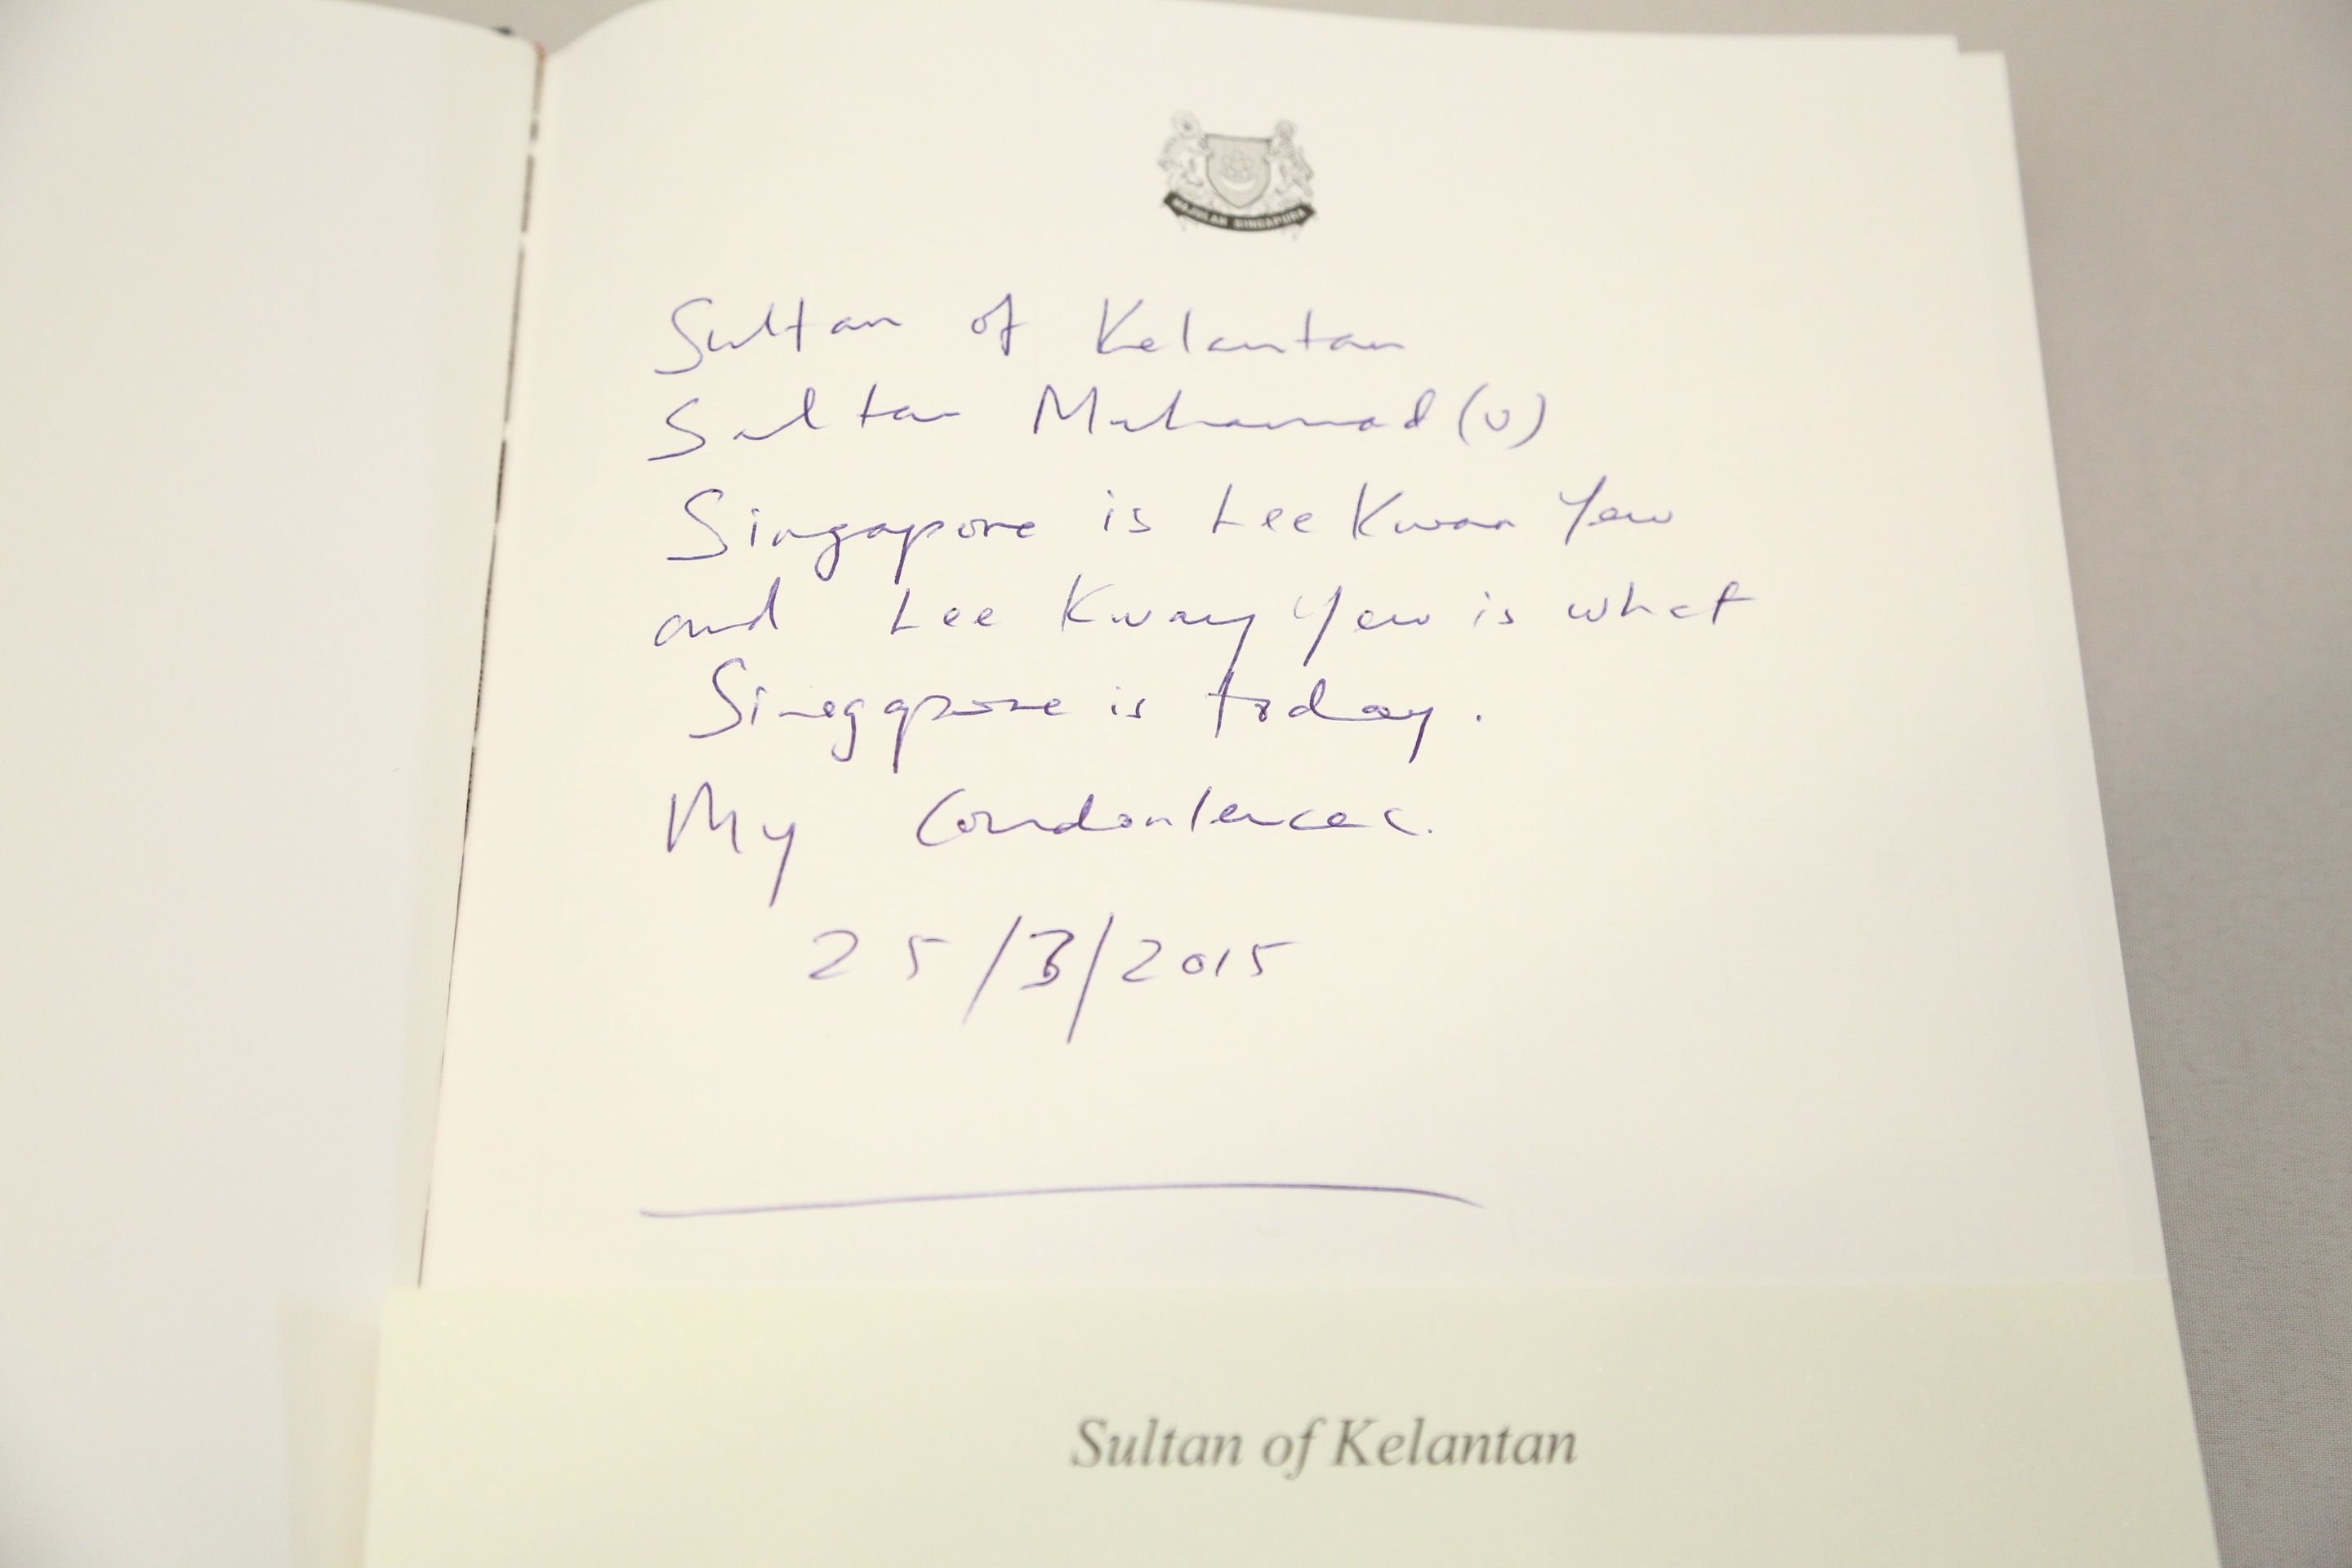 MAJULAH SINGAPURA
Sultan of Kelantan
Sultan Muhammad (v)
Singapore is Lee Kwan Yew
and Lee Kwang Yew is what
Singapore is today.
My Condonlences.
25/3/2015
Sultan of Kelantan